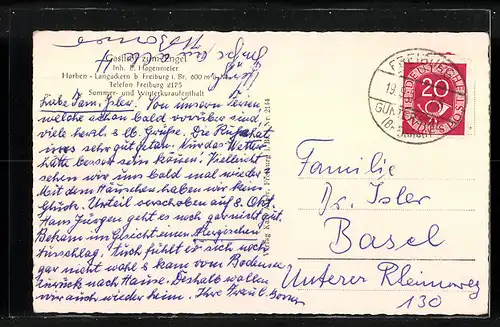 Gasthof zum Engel
Inh. E. Hagenmeier
Horben - Langackern b Freiburg i. Br. 600 m
Telefon Freiburg 2175
Sommer- und Winterkuraufenthalt
Liebe Fam. Isler. Von unsern Ferien,
welche schon bald vorüber sind,
viele herzl. Grüße. Die Ruhe hat
uns sehr gut getan. Nur das Wetter
hätte besser sein können! Vielleicht
sehen wir uns bald mal wieder.
Mit dem Häuschen haben wir kein
Glück. Urteil verschoben auf 8. Okt.
Hans Jürgen geht es noch gar nicht gut.
Bekam im Gesicht einen
Ausschlag. Auch fühlt er sich noch
gar nicht wohl & kam vom Bodensee
zurück nach Hause. Deshalb wollen
wir auch wieder heim. Ihre
Familie
Dr. Isler
Basel
Unterer Rheinweg
130
FREIBURG
19
GÜNTERSTAL
DEUTSCHE BUNDESPOST
20